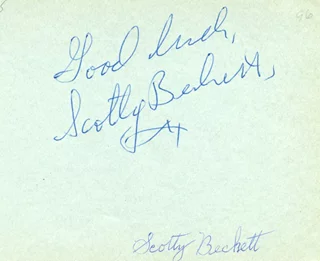 Good luck,
Scotty Beckett,
Scotty Beckett